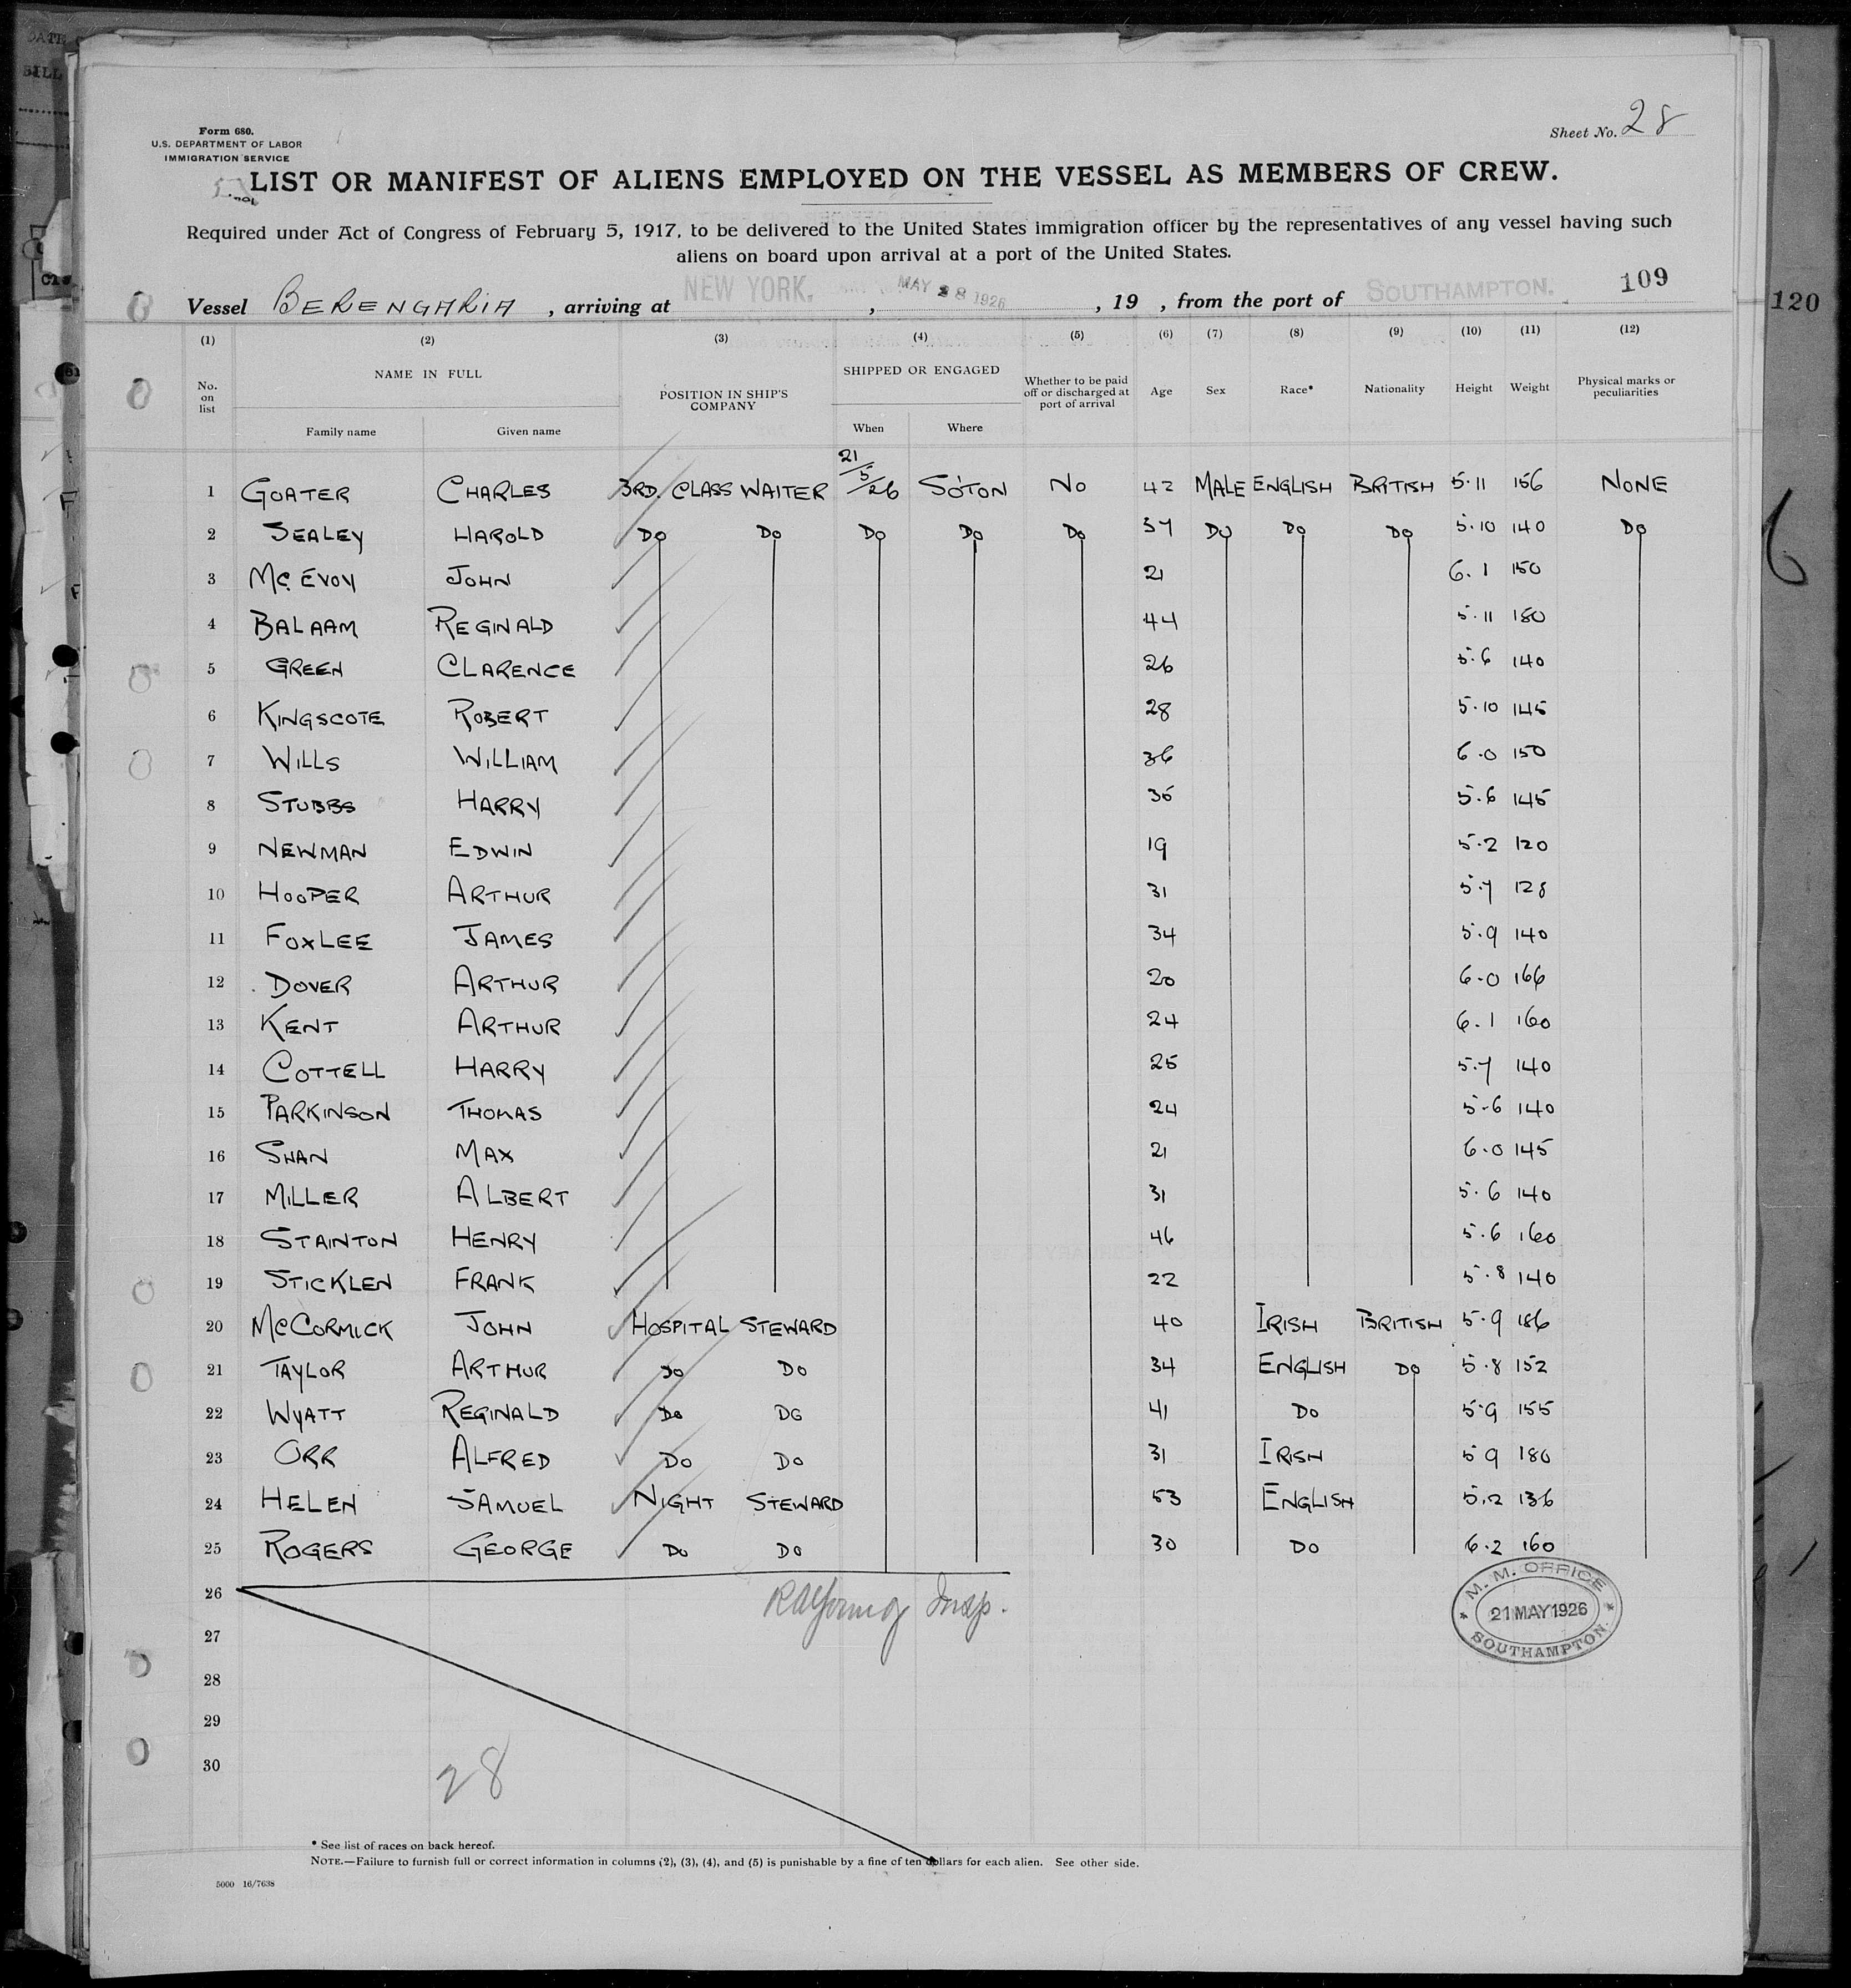 Form 680.
U.S. DEPARTMENT OF LABOR
IMMIGRATION SERVICE
Sheet No. 28
LIST OR MANIFEST OF ALIENS EMPLOYED ON THE VESSEL AS MEMBERS OF CREW.
Required under Act of Congress of February 5, 1917, to be delivered to the United States immigration officer by the representatives of any vessel having such
aliens on board upon arrival at a port of the United States.
Vessel BERENGARIA, arriving at NEW YORK, MAY 28 1926, 19 , from the port of SOUTHAMPTON. 109
120
(1) (2) (3) (4) (5) (6) (7) (8) (9) (10) (11) (12)
No. on list NAME IN FULL POSITION IN SHIP'S COMPANY SHIPPED OR ENGAGED Whether to be paid off or discharged at port of arrival Age Sex Race* Nationality Height Weight Physical marks or peculiarities
Family name Given name When Where
1 GOATER CHARLES 3RD. CLASS WAITER 21/5/26 SO'TON NO 42 MALE ENGLISH BRITISH 5.11 156 NONE
2 SEALEY HAROLD DO DO DO DO DO 37 DO DO DO 5.10 140 DO
3 MC. EVOY JOHN 21 6.1 150
4 BALAAM REGINALD 44 5.11 180
5 GREEN CLARENCE 26 5.6 140
6 KINGSCOTE ROBERT 28 5.10 145
7 WILLS WILLIAM 36 6.0 150
8 STUBBS HARRY 35 5.6 145
9 NEWMAN EDWIN 19 5.2 120
10 HOOPER ARTHUR 31 5.7 128
11 FOXLEE JAMES 34 5.9 140
12 DOVER ARTHUR 20 6.0 166
13 KENT ARTHUR 24 6.1 160
14 COTTELL HARRY 25 5.7 140
15 PARKINSON THOMAS 24 5.6 140
16 SHAN MAX 21 6.0 145
17 MILLER ALBERT 31 5.6 140
18 STAINTON HENRY 46 5.6 160
19 STICKLEN FRANK 22 5.8 140
20 MCCORMICK JOHN HOSPITAL STEWARD 40 IRISH BRITISH 5.9 186
21 TAYLOR ARTHUR DO DO 34 ENGLISH DO 5.8 152
22 WYATT REGINALD DO DO 41 DO 5.9 155
23 ORR ALFRED DO DO 31 IRISH 5 9 180
24 HELEN SAMUEL NIGHT STEWARD 53 ENGLISH 5.2 136
25 ROGERS GEORGE DO DO 30 DO 6.2 160
26
Insp.
M. M. OFFICE
21 MAY 1926
SOUTHAMPTON
27
28
29
30
28
* See list of races on back hereof.
NOTE.—Failure to furnish full or correct information in columns (2), (3), (4), and (5) is punishable by a fine of ten dollars for each alien. See other side.
5000 16/7638